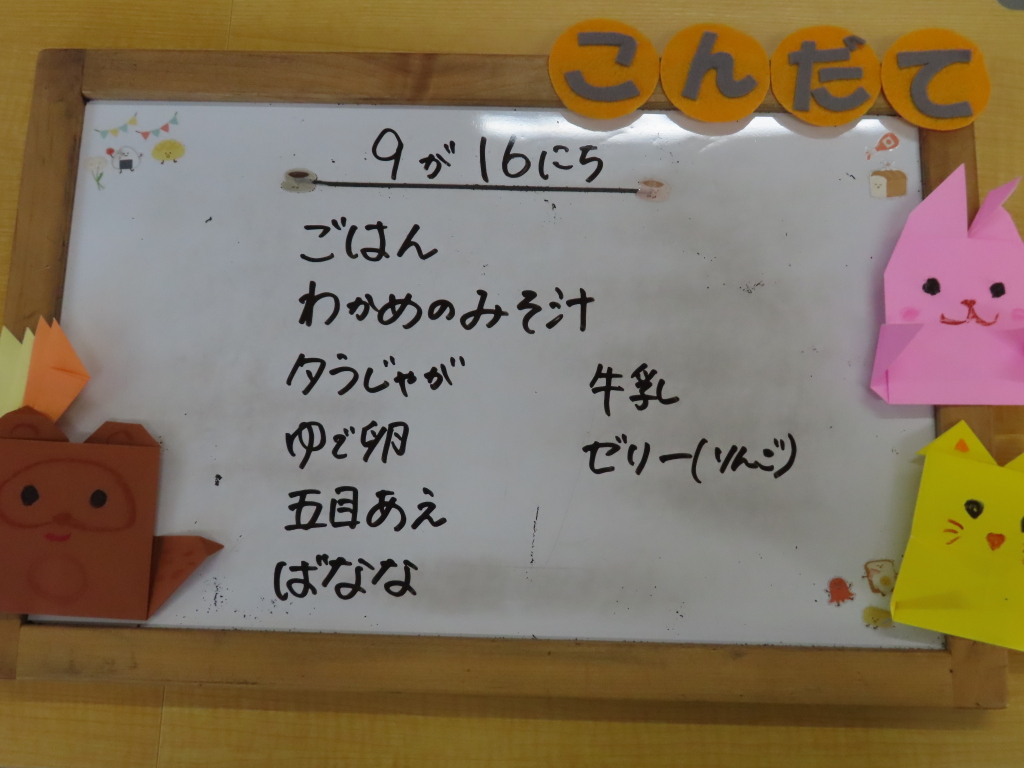 こんだて
9が16にち
ごはん
わかめのみそ汁
タうじゃが
ゆで卵
五目あえ
ばなな
牛乳
ゼリー(りんご)